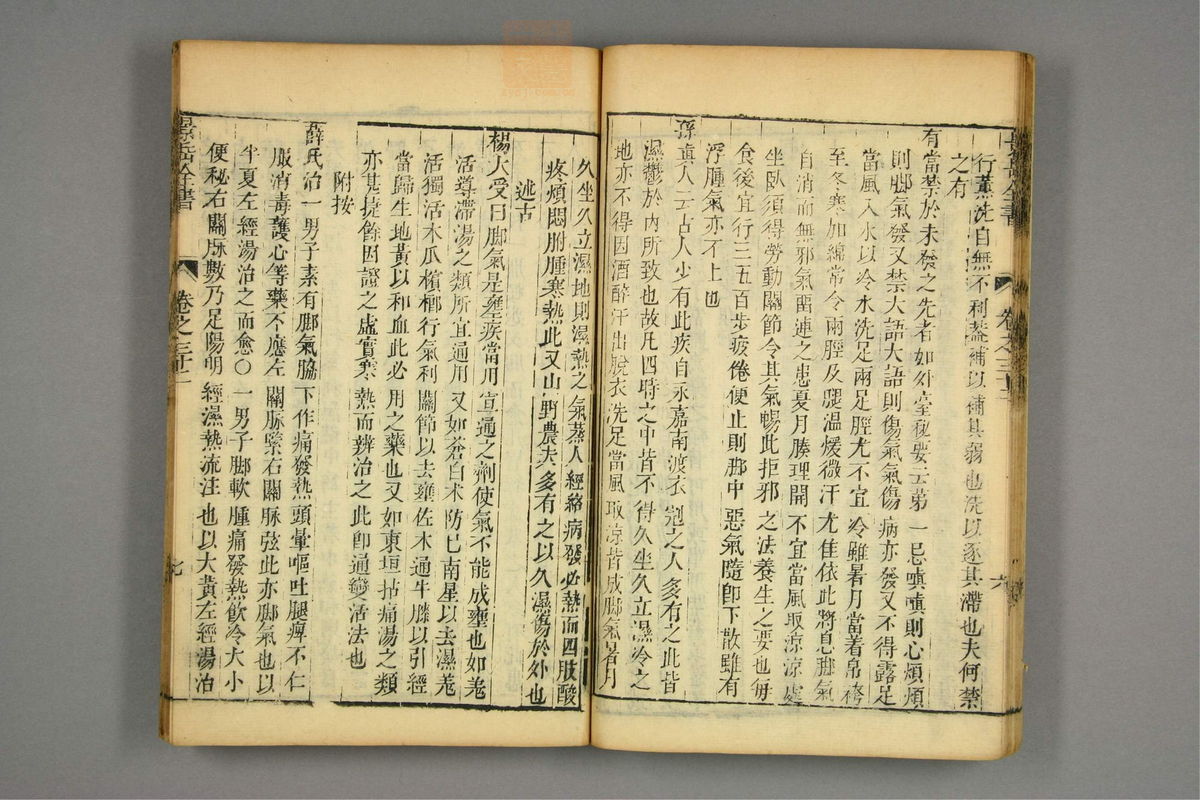 行薰洗自無不利蓋補以補其弱也洗以逐其滯也夫何禁
之有
有當禁於未發之先者如外臺秘要云第一忌嗔嗔則心煩煩
則脚氣發又禁大語大語則傷氣氣傷病亦發又不得露足
當風入水以冷水洗足兩足脛尤不宜冷雖暑月當着帛袴
至冬寒加綿常令兩脛及腿溫煖微汗尤佳依此將息脚氣
自消而無邪氣畱連之患夏月腠理開不宜當風取涼涼處
坐臥須得勞動關節令其氣暢此拒邪之法養生之要也每
食後宜行三五百步疲倦便止則脚中惡氣隨卽下散雖有
浮腫氣亦不上也
孫眞人云古人少有此疾自永嘉南渡衣冠之人多有之此皆
濕鬱於內所致也故凡四時之中皆不得久坐久立濕冷之
地亦不得因酒醉汗出脫衣洗足當風取涼皆成脚氣暑月
久坐久立濕地則濕熱之氣蒸人經絡病發必熱而四肢酸
疼煩悶胕腫寒熱此又山野農夫多有之以久濕傷於外也
述古
楊大受曰脚氣是壅疾當用宣通之劑使氣不能成壅也如羗
活導滯湯之類所宜通用又如蒼白朮防已南星以去濕羗
活獨活木瓜檳榔行氣利關節以去壅佐木通牛膝以引經
當歸生地黃以和血此必用之藥也又如東垣拈痛湯之類
亦甚捷餘因證之虛實寒熱而辨治之此卽通變活法也
附按
薛氏治一男子素有脚氣脇下作痛發熱頭暈嘔吐腿痺不仁
服消毒護心等藥不應左關脉緊右關脉弦此亦脚氣也以
半夏左經湯治之而愈〇一男子脚軟腫痛發熱飲冷大小
便秘右關脉數乃足陽明經濕熱流注也以大黃左經湯治
景岳全書
卷之三十二
七